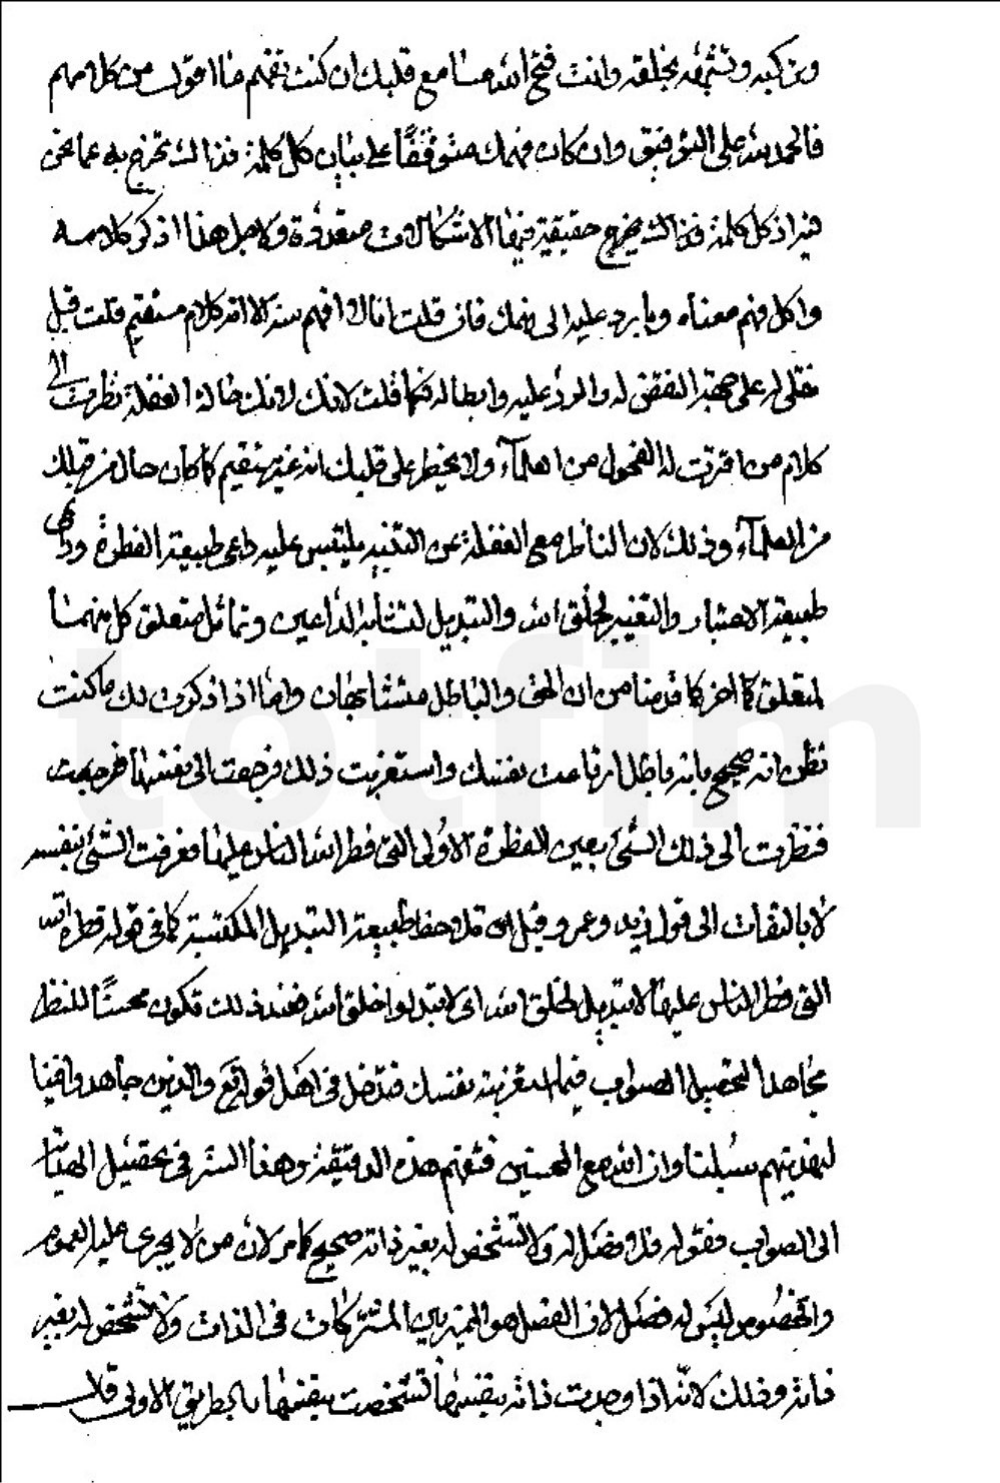 وتركيبه وتشبهه بخلقه وانت فتح الله مسامع قلبك ان كنت تفهم ما اقول من كلامهم
فالحمد لله على التوفيق وان كان فهمك متوقفا على بيان كل كلمة فذلك نخرج به عما نحن
فيه اذ كل كلمة فذلك يخرج حقيقة فيها الاشكالات متعددة ولاجل هذا اذكر كلامه
واكل فهم معناه وما يرد عليه الى فهمك فان قلت انا لا افهم منه الا انه كلام مستقيم قلت قبل
نقلي له على جهة النقض له والرد عليه وابطاله فكما قلت لانك حالة الغفلة نظرت الى
كلام من اقرت له الفحول من العلمآء ولا يخطر على قلبك انه غير مستقيم كما كان حال من قبلك
من العلمآء وذلك لان الناظر مع الغفلة عن التنبيه يلتبس عليه داعى طبيعة الفطرة وداعى
طبيعة الاعتبار والتغيير لخلق الله والتبديل لتشابه الداعيين وتماثل متعلق كل منهما
لمتعلق الآخر كما قدمنا من ان الحق والباطل متشابهان واما اذا ذكرت لك ما كنت
تظن انه صحيح بانه باطل ارتاعت نفسك واستغربت ذلك فرجعت الى نفسها فرجعت
فنظرت الى ذلك الشئ بعين الفطرة الاولى التى فطر الله الناس عليها فعرفت الشئ بنفسه
لا بالتفات الى قول زيد وعمرو وقيل وقال ولا حفاظ طبيعة التبديل المكتسبة كما فى قوله فطرة الله
التى فطر الناس عليها لا تبديل لخلق الله اى لا تبدلوا خلق الله فعند ذلك تكون محسنا للنظر
مجاهدا لتحصيل الصواب فيما استغربته نفسك فتدخل فى اهل قوله تع والذين جاهدوا فينا
لنهدينهم سبلنا وان الله لمع المحسنين فتفهم هذه الدقيقة وهذا السر فى تحصيل
الى الصواب فقوله فلا فصل له ولا تشخص له بغير ذاته صحيح كما مر لان من لا يجرى عليه العموم
والخصوص ليس له فصل لان الفصل هو المميز بين المشتركات فى الذات ولا تشخص له بغير
ذاته وذلك لانه اذا وجدت ذاته بنفسها تشخصت بنفسها بالطريق الاولى قال